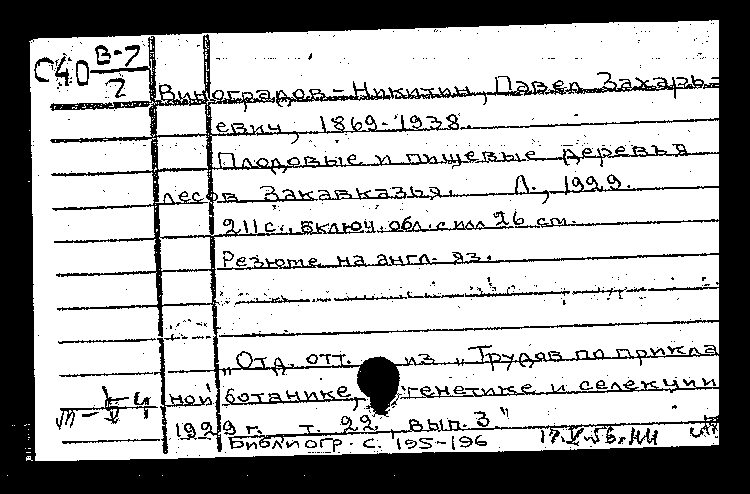 С40 В-7
2
Виноградов-Никитин, Павел Захарь-
евич, 1869-1938.
Плодовые и пищевые деревья
лесов Закавказья. Л., 1929.
211 с., включ. обл. с илл 26 см.
Резюме на англ. яз.
„Отд. отт. из „Трудов по прикла
ной ботанике, генетике и селекции
1929 г. т. 22, вып. 3"
Библиогр. с. 195-196